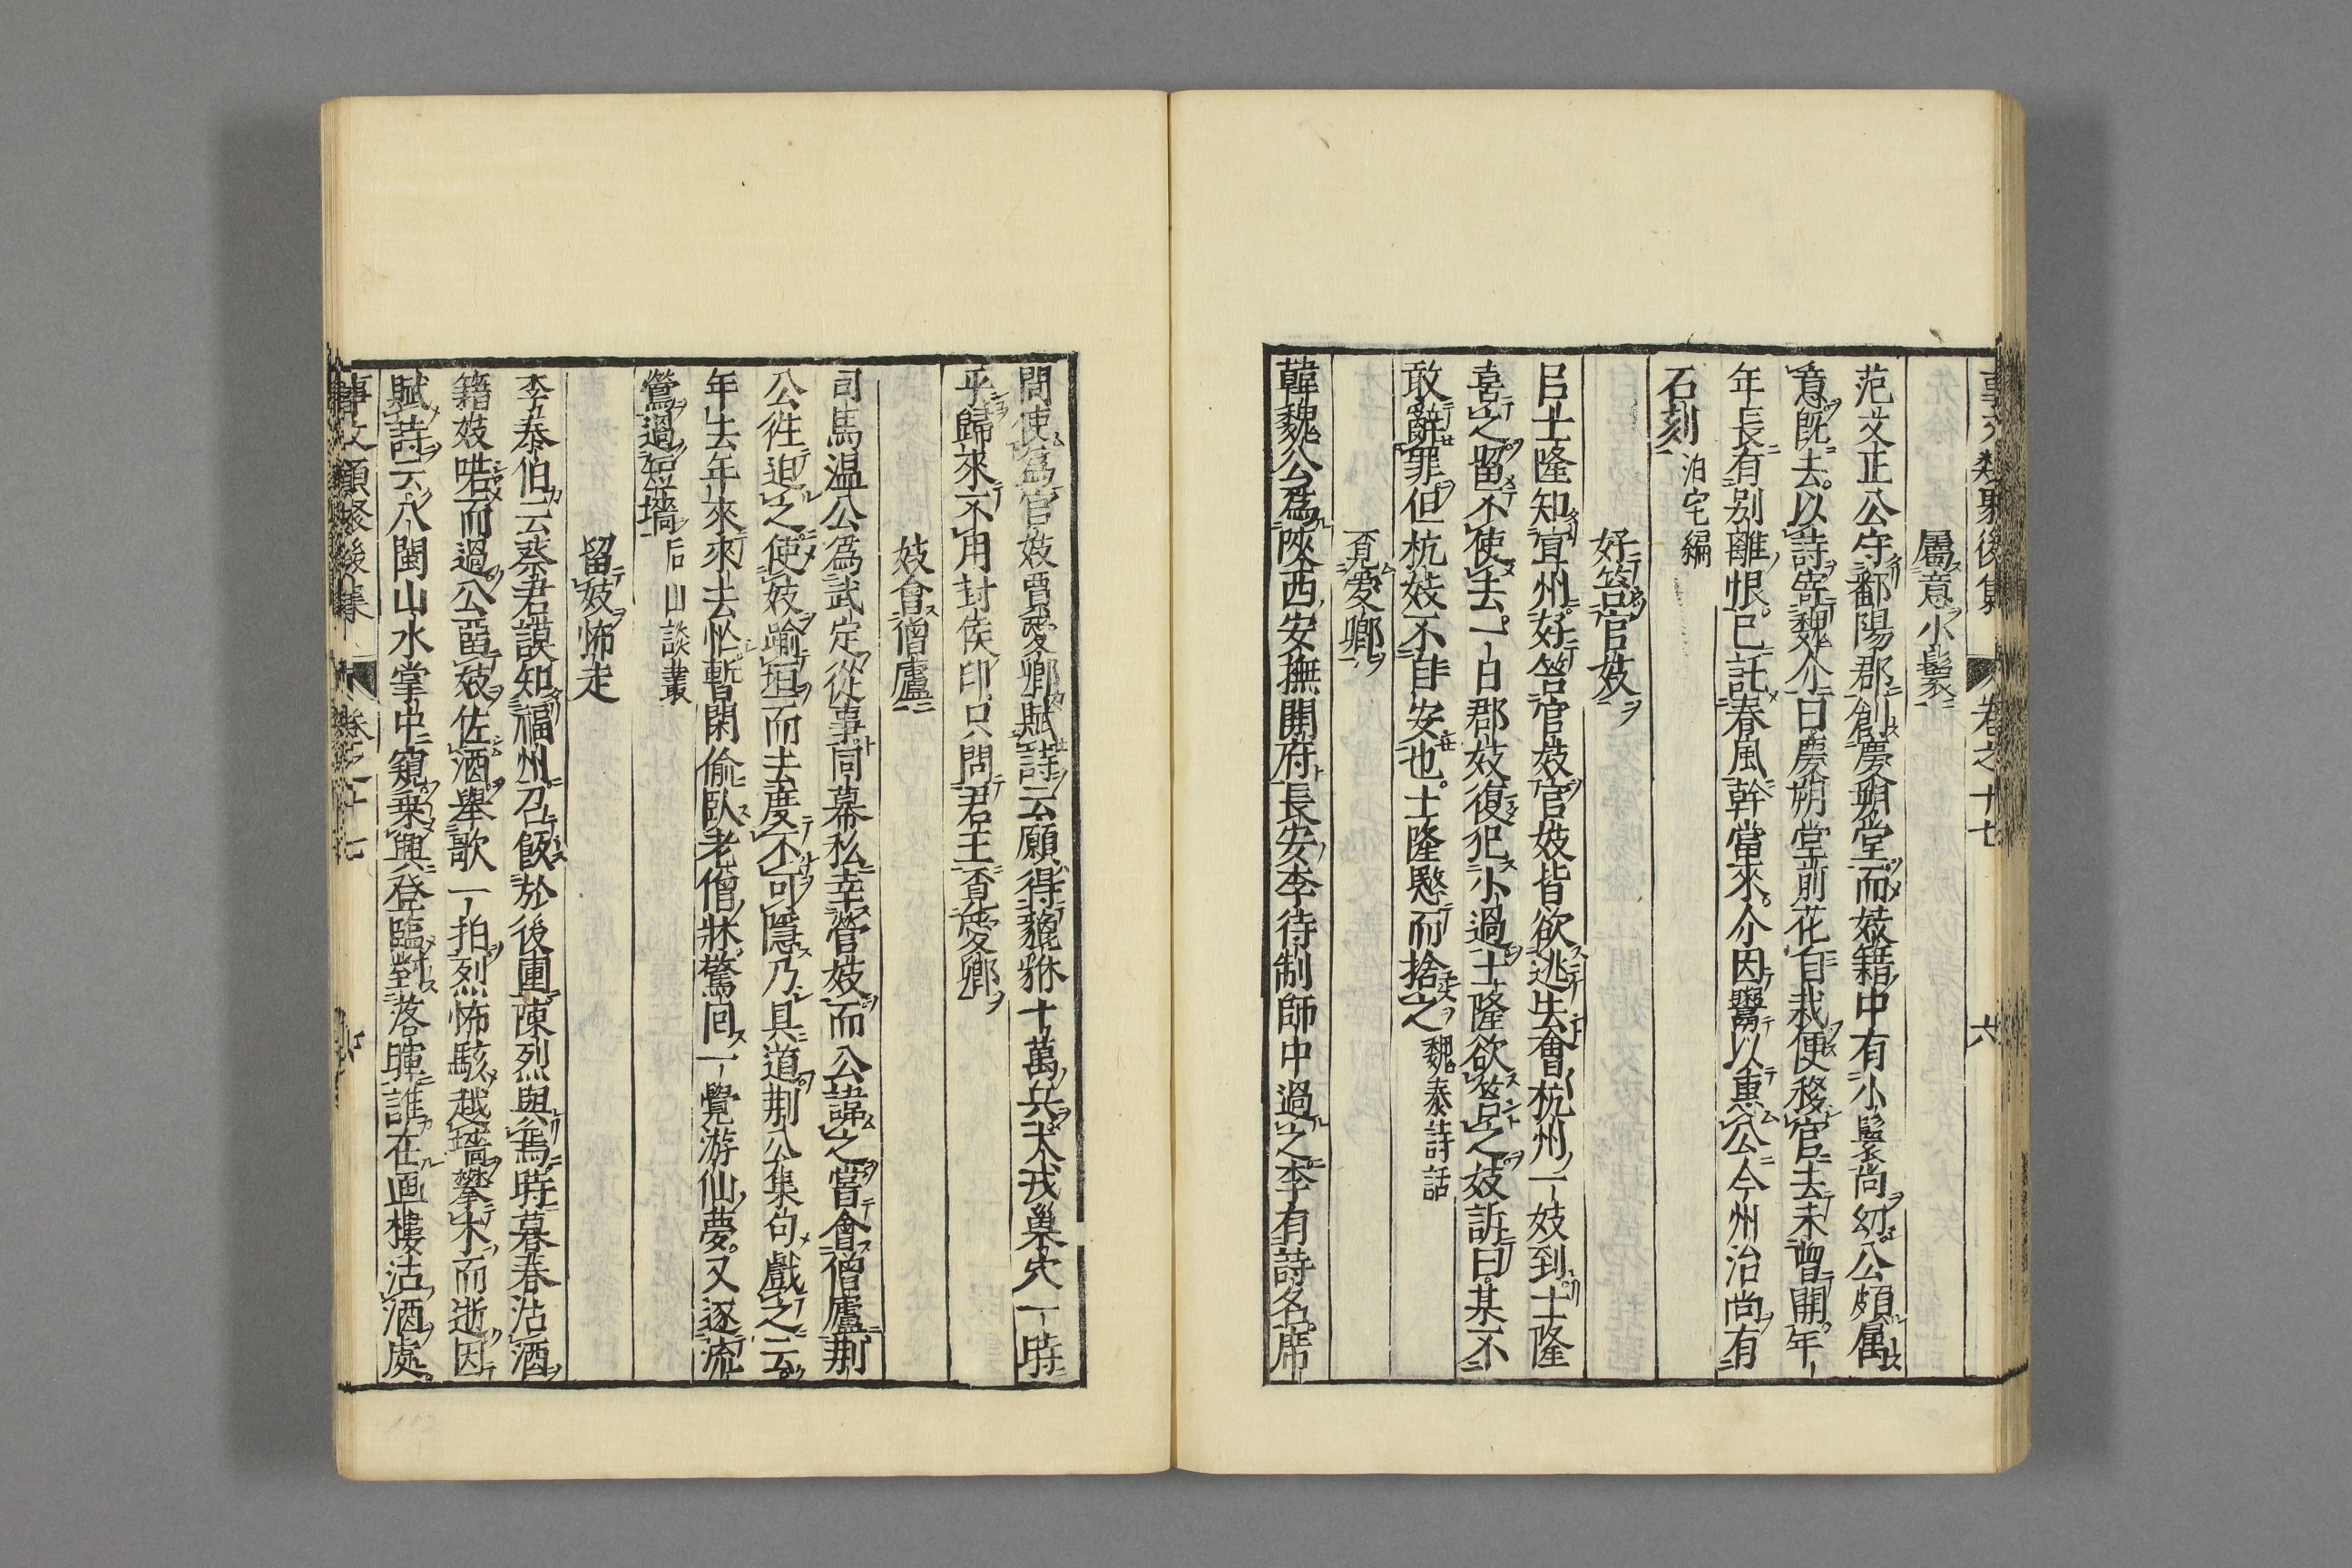 事文類聚後集 卷之十七 六
屬意小鬟
范文正公守鄱陽郡創慶朔堂而妓籍中有小鬟尚幼公頗属
意既去以詩寄魏介曰慶朔堂前花自栽便移官去未曾開年
年長有别離恨已託春風幹當來介因鬻以惠公今州治尚有
石刻 泊宅編
好笞官妓
吕士隆知宣州好笞官妓官妓皆欲逃去會杭州一妓到士隆
喜之留不使去一日郡妓復犯小過士隆欲笞之妓訴曰某不
敢辭罪但杭妓不自安也士隆愍而捨之 魏泰詩話
覔愛卿
韓魏公爲陝西安撫開府長安李待制師中過之李有詩名席
間使爲官妓賈愛卿賦詩云願得貔貅十萬兵犬戎巢穴一時
平歸來不用封侯印只問君王覔愛卿
妓會僧廬
司馬温公爲武定從事同幕私幸營妓而公諱之嘗會僧廬荆
公徃迫之使妓踰垣而去度不可隱乃具道荆公集句戲之云
年去年來來去忙暫閑偷臥老僧牀驚回一覺游仙夢又逐流
鶯過短墻 后山談叢
留妓怖走
李泰伯云蔡君謨知福州召飯於後圃陳烈與焉時暮春沽酒
籍妓喏而過公畱妓佐酒舉歌一拍烈怖駭越墻攀木而逝因
賦詩云八閩山水掌中窺乗興登臨對落暉誰在画樓沽酒處
事文類聚後集 卷之十七